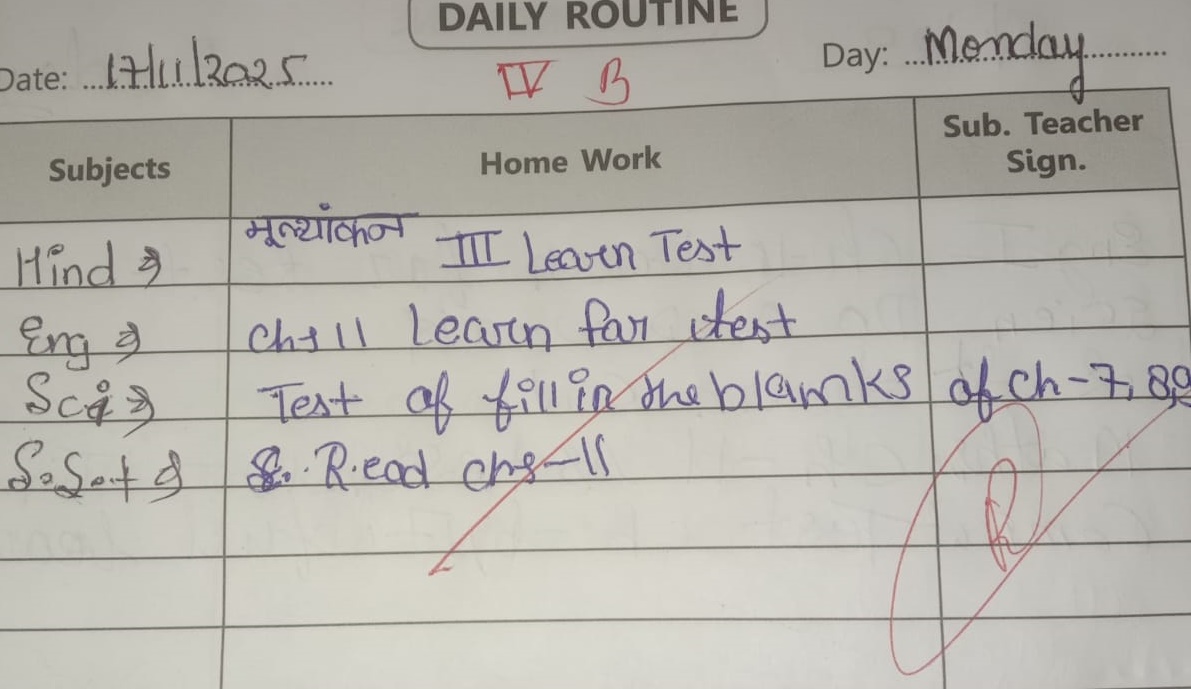 DAILY ROUTINE
Date: 17/11/2025 Day: Monday
IV B
Subjects Home Work Sub. Teacher Sign.
Hind मूल्यांकन III Learn Test
Eng Ch-11 Learn far test
Sci Test of fill in the blamks of Ch-7, 8,9
S.S.t Read ch-11
R